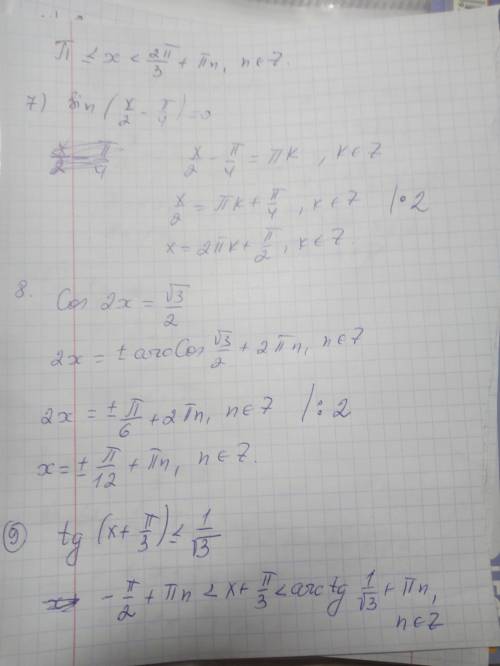 π ≤ x < 2π/3 + πn, n ∈ Z.
7) sin (x/2 - π/4) = 0
x/2 - π/4 = πk , k ∈ Z
x/2 = πk + π/4 , k ∈ Z |·2
x = 2πk + π/2 , k ∈ Z.
8. Cos 2x = √3/2
2x = ± arcCos √3/2 + 2πn, n ∈ Z
2x = ± π/6 + 2πn, n ∈ Z |: 2
x = ± π/12 + πn, n ∈ Z.
9) tg (x + π/3) ≤ 1/√3
- π/2 + πn < x + π/3 < arctg 1/√3 + πn,
n ∈ Z